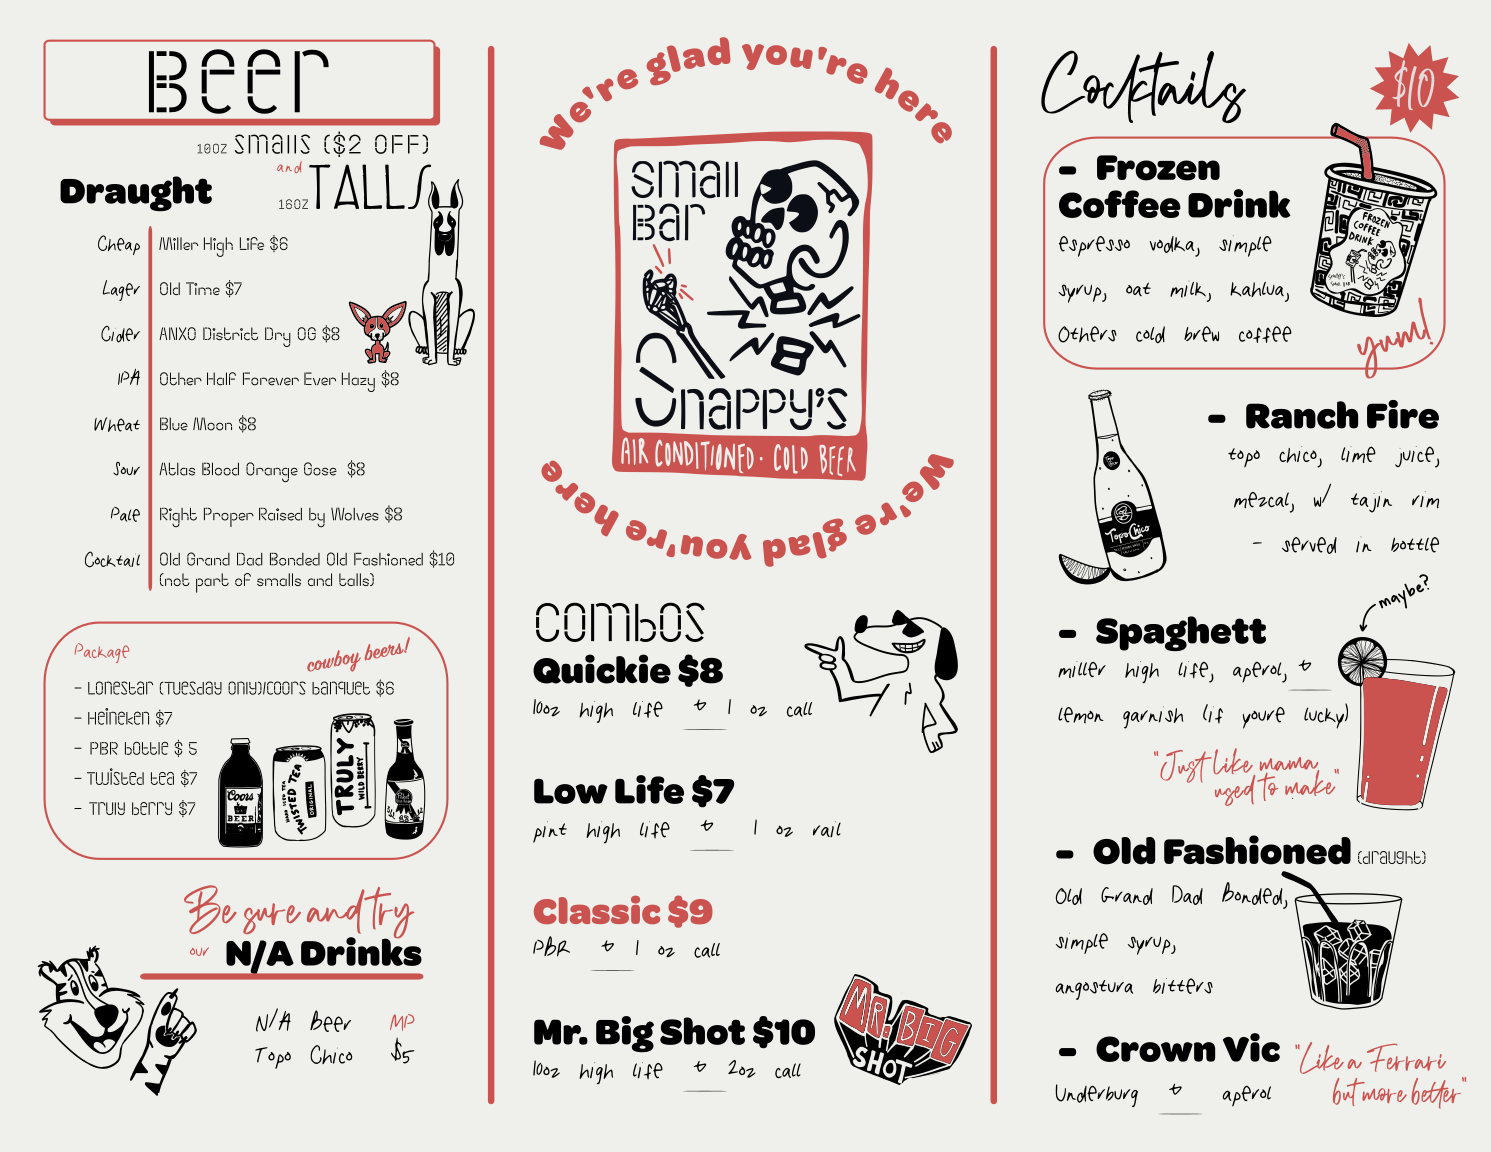 Beer
10OZ smalls ($2 OFF)
and
16OZ TALLS
Draught
Cheap Miller High Life $6
Lager Old Time $7
Cider ANXO District Dry OG $8
IPA Other Half Forever Ever Hazy $8
Wheat Blue Moon $8
Sour Atlas Blood Orange Gose $8
Pale Right Proper Raised by Wolves $8
Cocktail Old Grand Dad Bonded Old Fashioned $10
(not part of smalls and talls)
Package
cowboy beers!
- Lonestar (Tuesday only)/coors banquet $6
- Heineken $7
- PBR bottle $ 5
- Twisted tea $7
- Truly berry $7
Coors
BEER
HARD ICED TEA
TWISTED TEA
ORIGINAL
TRULY
WILD BERRY
Be sure and try
our N/A Drinks
N/A Beer MP
Topo Chico $5
We're glad you're here
small
BAR
Snappy's
AIR CONDITIONED · COLD BEER
We're glad you're here
combos
Quickie $8
10oz high life & 1 oz call
Low Life $7
pint high life & 1 oz rail
Classic $9
PBR & 1 oz call
Mr. Big Shot $10
10oz high life & 2oz call
MR. BIG
SHOT
Cocktails
$10
- Frozen
Coffee Drink
espresso vodka, simple
syrup, oat milk, kahlua,
Others cold brew coffee
FROZEN
COFFEE
DRINK
yum!
- Ranch Fire
topo chico, lime juice,
mezcal, w/ tajin rim
- served in bottle
Topo Chico
maybe?
- Spaghett
miller high life, aperol, &
lemon garnish (if youre lucky)
"Just like mama
used to make"
- Old Fashioned (draught)
Old Grand Dad Bonded,
simple syrup,
angostura bitters
- Crown Vic
Underburg & aperol
"Like a Ferrari
but more better"